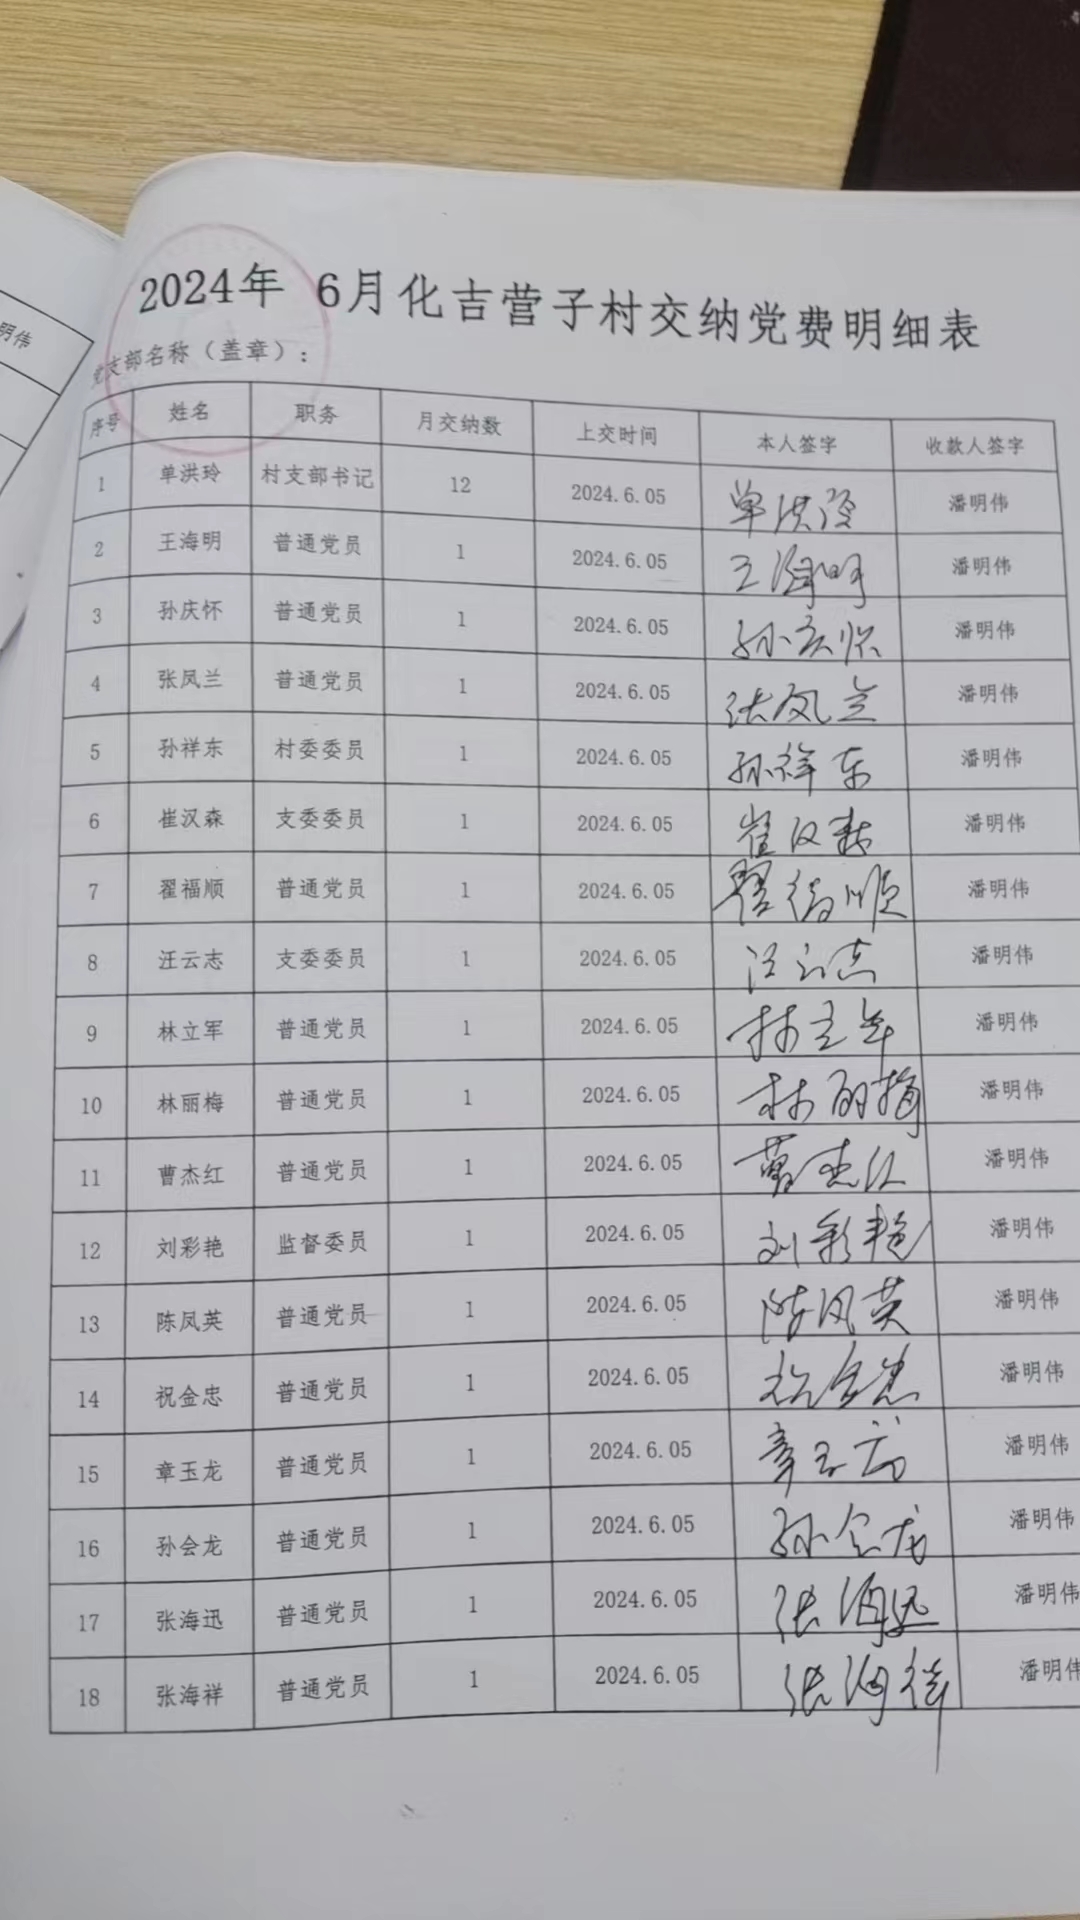 明伟
2024年 6月化吉营子村交纳党费明细表
党支部名称（盖章）：
序号 姓名 职务 月交纳数 上交时间 本人签字 收款人签字
1 单洪玲 村支部书记 12 2024.6.05 单洪玲 潘明伟
2 王海明 普通党员 1 2024.6.05 王海明 潘明伟
3 孙庆怀 普通党员 1 2024.6.05 孙庆怀 潘明伟
4 张凤兰 普通党员 1 2024.6.05 张凤兰 潘明伟
5 孙祥东 村委委员 1 2024.6.05 孙祥东 潘明伟
6 崔汉森 支委委员 1 2024.6.05 崔汉森 潘明伟
7 翟福顺 普通党员 1 2024.6.05 翟福顺 潘明伟
8 汪云志 支委委员 1 2024.6.05 汪云志 潘明伟
9 林立军 普通党员 1 2024.6.05 林立军 潘明伟
10 林丽梅 普通党员 1 2024.6.05 林丽梅 潘明伟
11 曹杰红 普通党员 1 2024.6.05 曹杰红 潘明伟
12 刘彩艳 监督委员 1 2024.6.05 刘彩艳 潘明伟
13 陈凤英 普通党员 1 2024.6.05 陈凤英 潘明伟
14 祝金忠 普通党员 1 2024.6.05 祝金忠 潘明伟
15 章玉龙 普通党员 1 2024.6.05 章玉龙 潘明伟
16 孙会龙 普通党员 1 2024.6.05 孙会龙 潘明伟
17 张海迅 普通党员 1 2024.6.05 张海迅 潘明伟
18 张海祥 普通党员 1 2024.6.05 张海祥 潘明伟